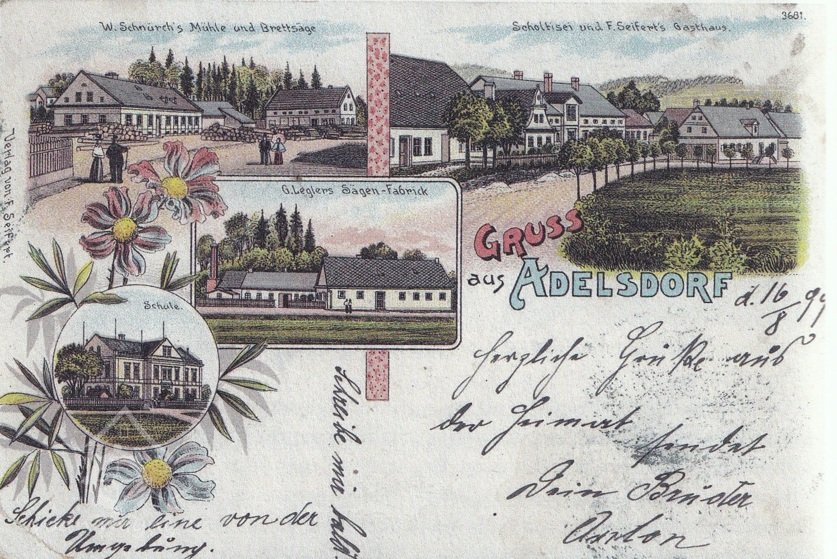 3681.
W. Schnürch's Mühle und Brettsäge
Scholtisei und F. Seifert's Gasthaus.
Verlag von F. Seifert.
G. Leglers Sägen-Fabrick
GRUSS
aus ADELSDORF
d. 16/8 99
Schule.
Herzliche Grüße aus
der Heimat
sendet
Dein Bruder
Anton
Schreibe mir bald
Schicke mir eine von der
Umgebung.